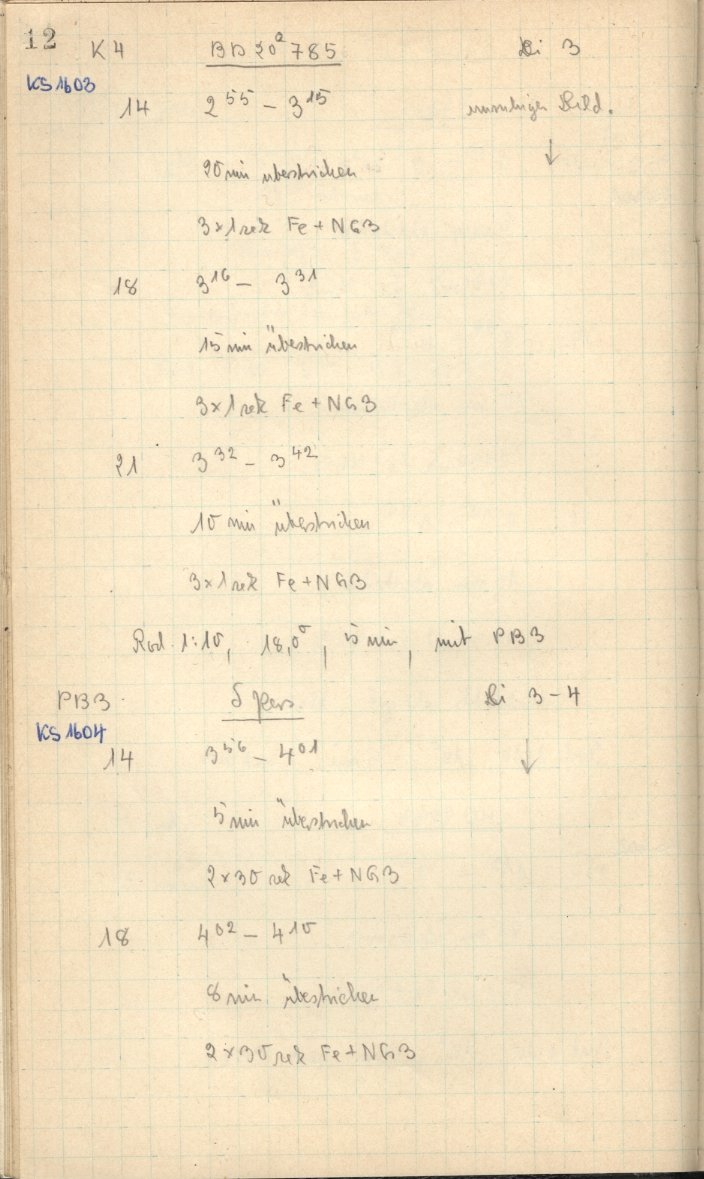 12 K4 BD 20² 785 Di 3
KS1603
14 2⁵⁵ – 3¹⁵ unruhiges Bild.
↓
20 min überstrichen
3×1 sek Fe + NG3
18 3¹⁶ – 3³¹
15 min überstrichen
3×1 sek Fe + NG3
21 3³² – 3⁴²
10 min überstrichen
3×1 sek Fe + NG3
Rod. 1:10, 18,0⁰, 5 min, mit PB3
PB3 δ Pers Di 3-4
KS1604
14 3⁵⁶ – 4⁰¹ ↓
5 min überstrichen
2×30 sek Fe + NG3
18 4⁰² – 4¹⁰
8 min überstrichen
2×30 sek Fe + NG3